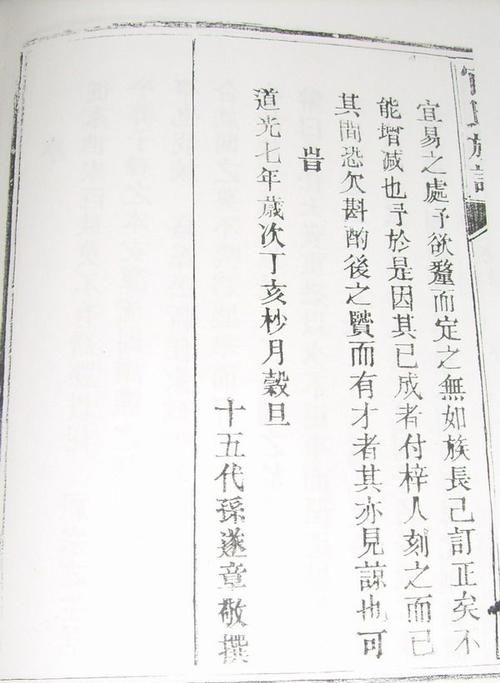 族譜
宜易之處予欲釐而定之無如族長己訂正矣不
能增减也予於是因其已成者付梓人刻之而己
其間恐欠斟酌後之賢而有才者其亦見諒也可
旹
道光七年歲次丁亥杪月穀旦
十五代孫遂章敬撰